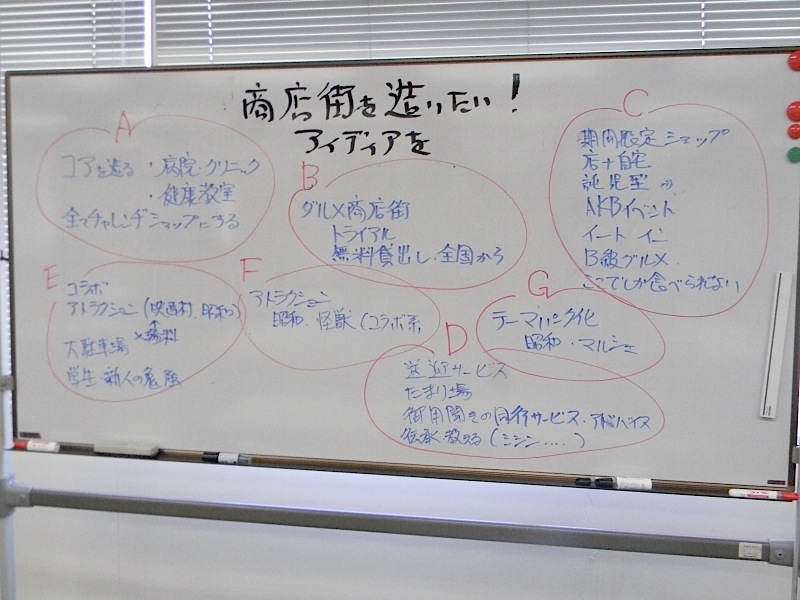 商店街を造りたい!
アイディアを
A
コアを造る ・病院・クリニック
・健康教室
全てチャレンヂショップにする
B
グルメ商店街
トライアル
無料貸出し・全国から
C
期間限定ショップ
店+自宅
託児型
AKBイベント
イートイン
B級グルメ
ここでしか食べられない
E
コラボ
アトラクション(映画村、昭和)
大駐車場 ×無料
学生・新人の勉強
F
アトラクション
昭和・怪獣(コラボ系
G
テーマパーク化
昭和・マルシェ
D
送迎サービス
たまり場
御用聞きの同行サービス・アドバイス
伝承教える(ミシン....)